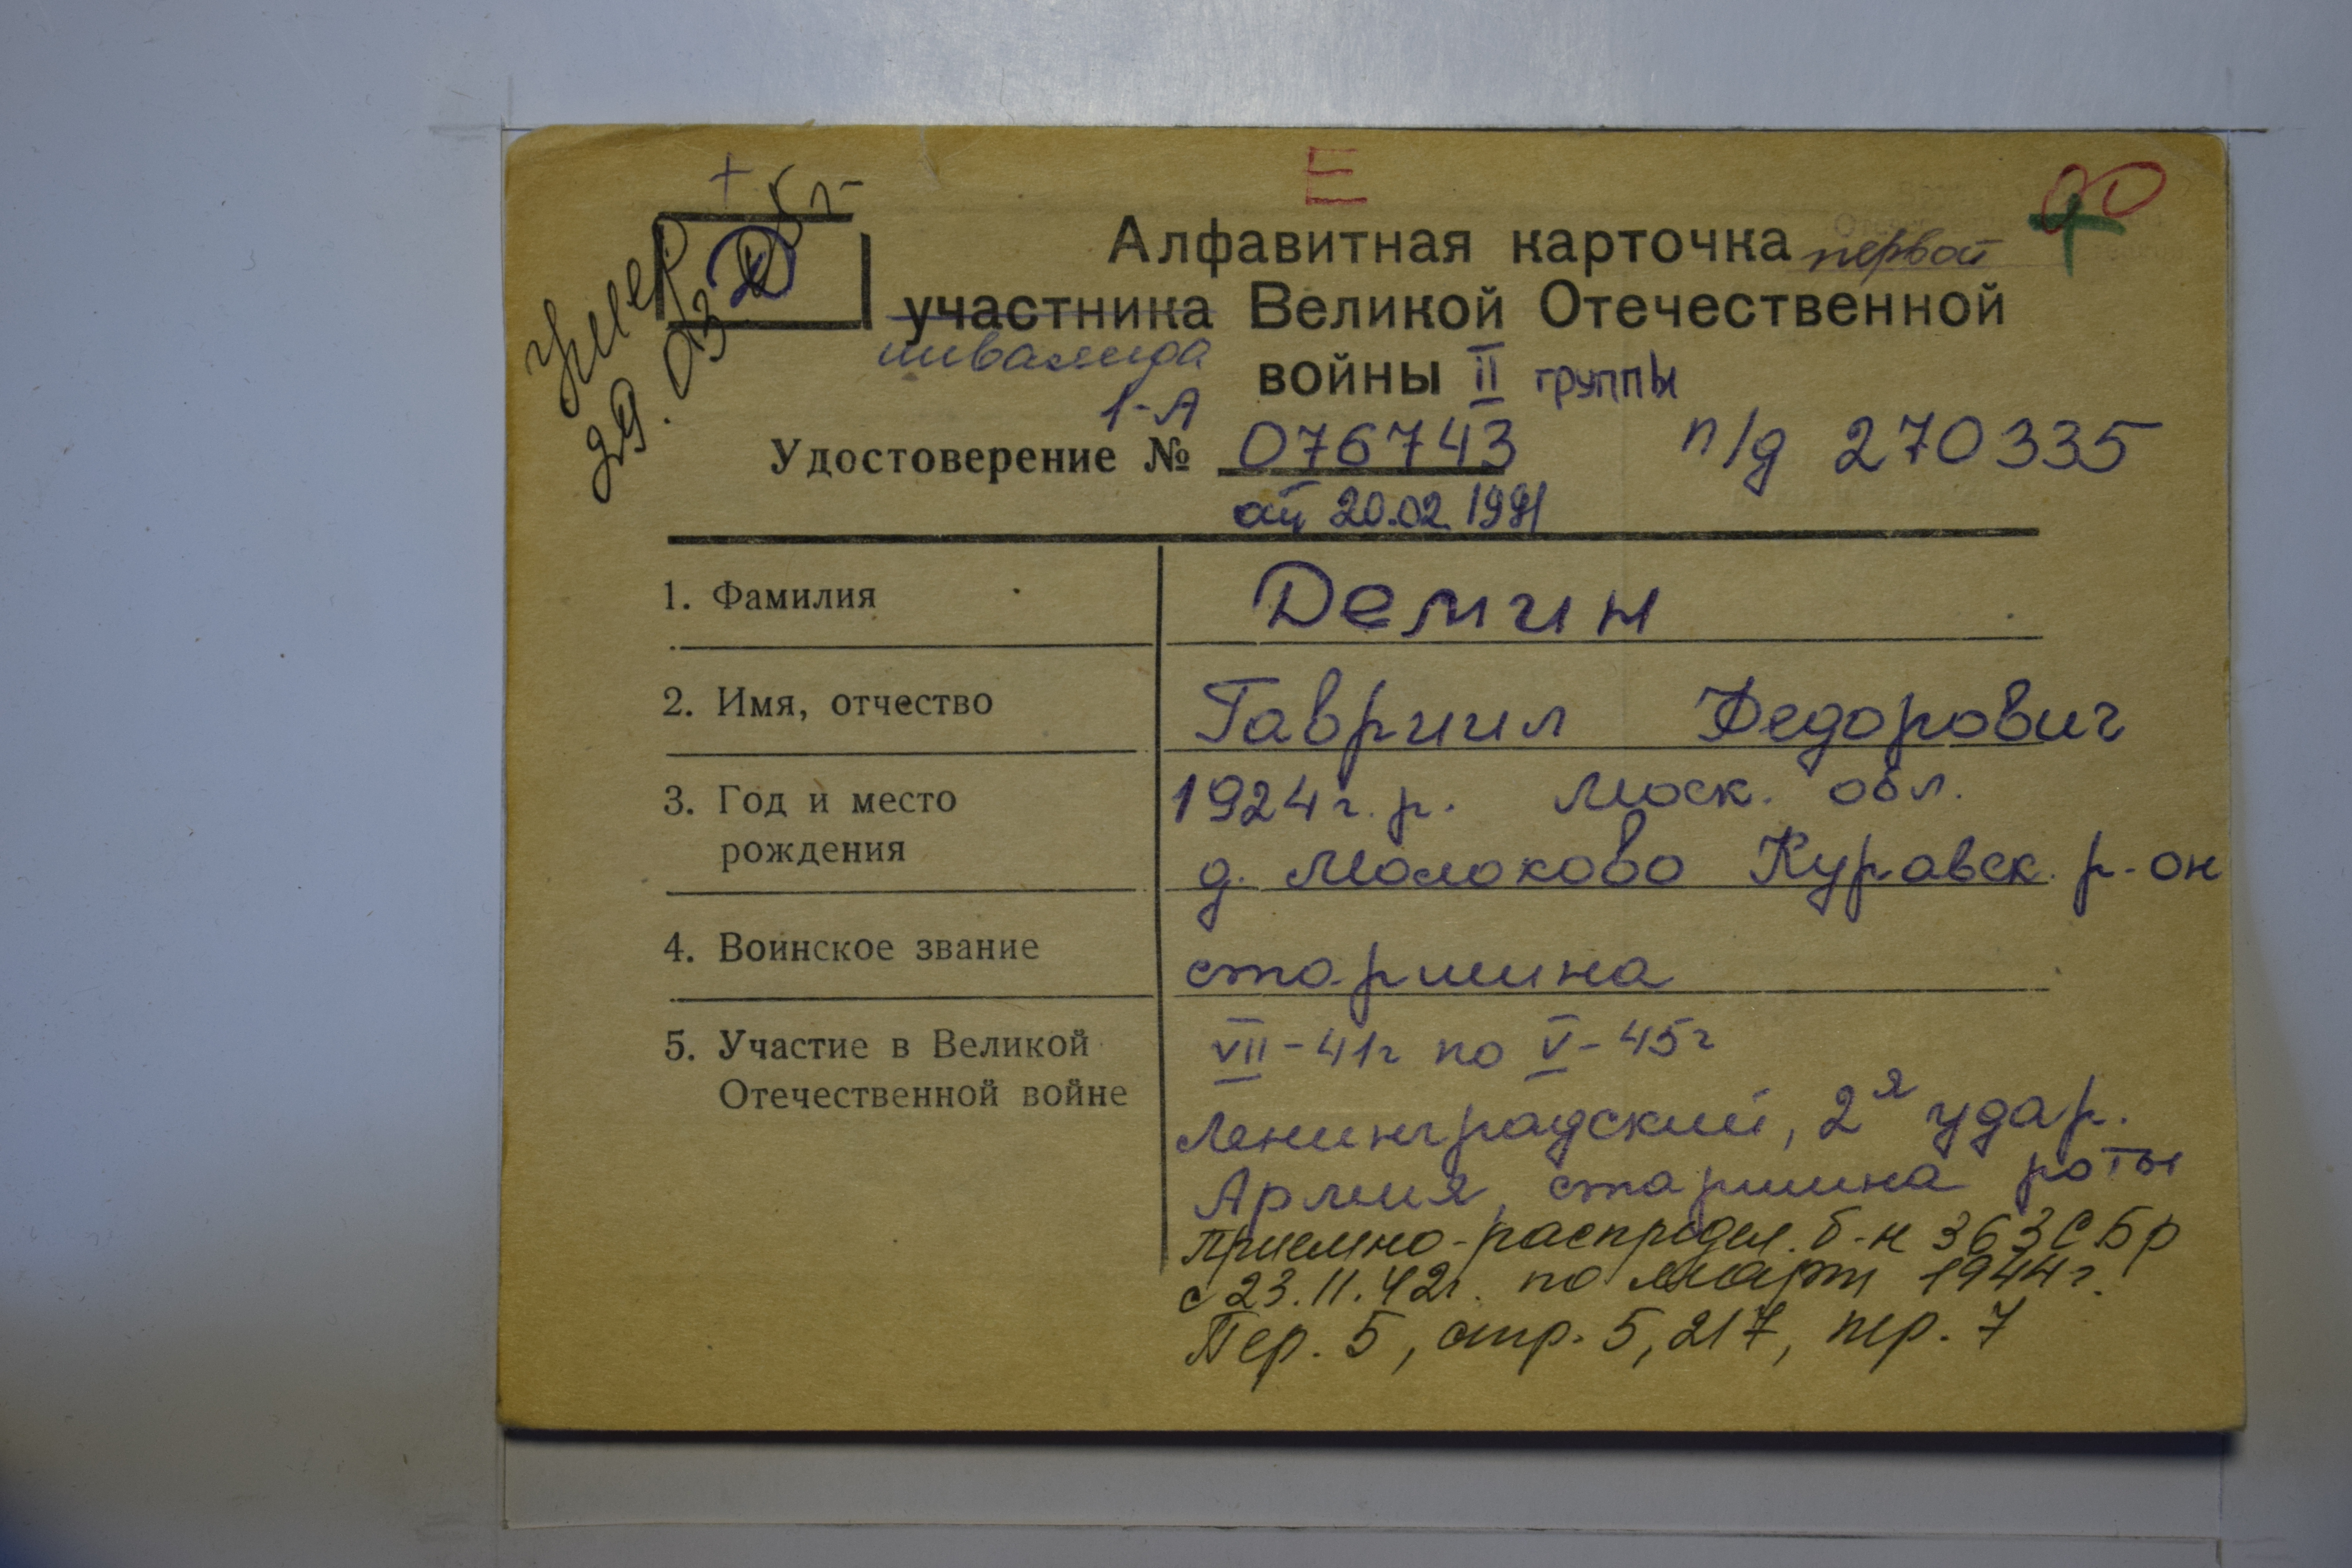 Е
+
Умер
29.03.
Д
Алфавитная карточка первой
участника Великой Отечественной
инвалида
войны II группы
1-А
Удостоверение № 076743 п/д 270335
от 20.02.1991
1. Фамилия Демин
2. Имя, отчество Гавриил Федорович
3. Год и место 1924г.р. Моск. обл.
рождения д. Молоково Куравск. р-он
4. Воинское звание старшина
5. Участие в Великой VII-41г по V-45г
Отечественной войне Ленинградский, 2я удар.
Армия, старшина роты
Приемно-распредел. б-н 363СБр
с 23.11.42г. по март 1944г.
Пер. 5, стр. 5, 217, пер. 7